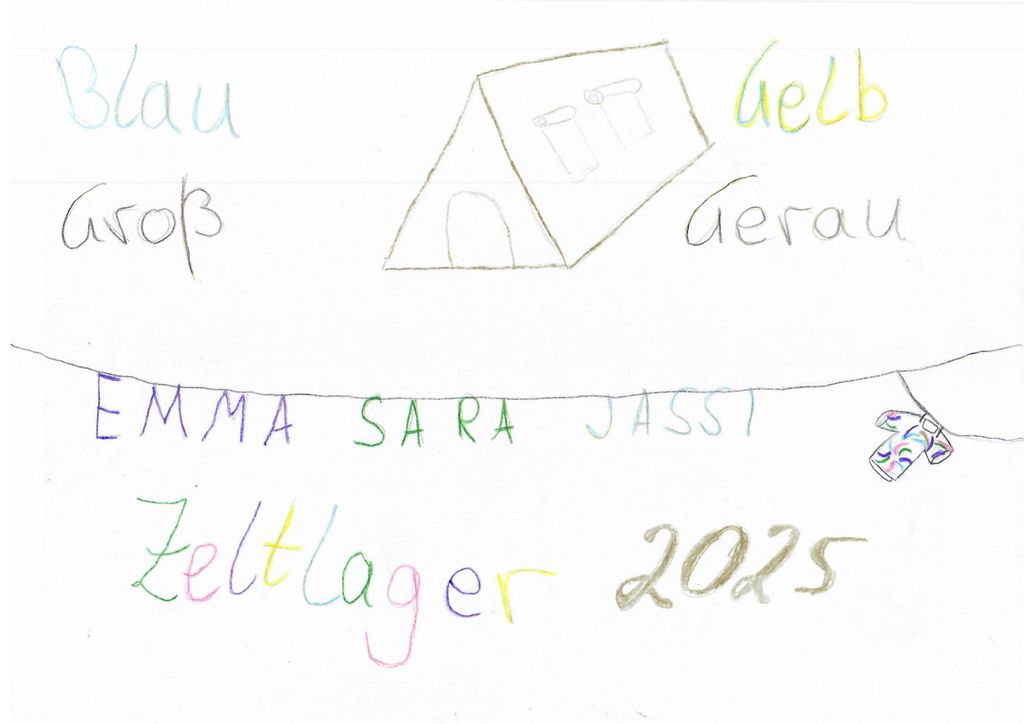 Blau Gelb
Groß Gerau
EMMA SARA JASSI
Zeltlager 2025